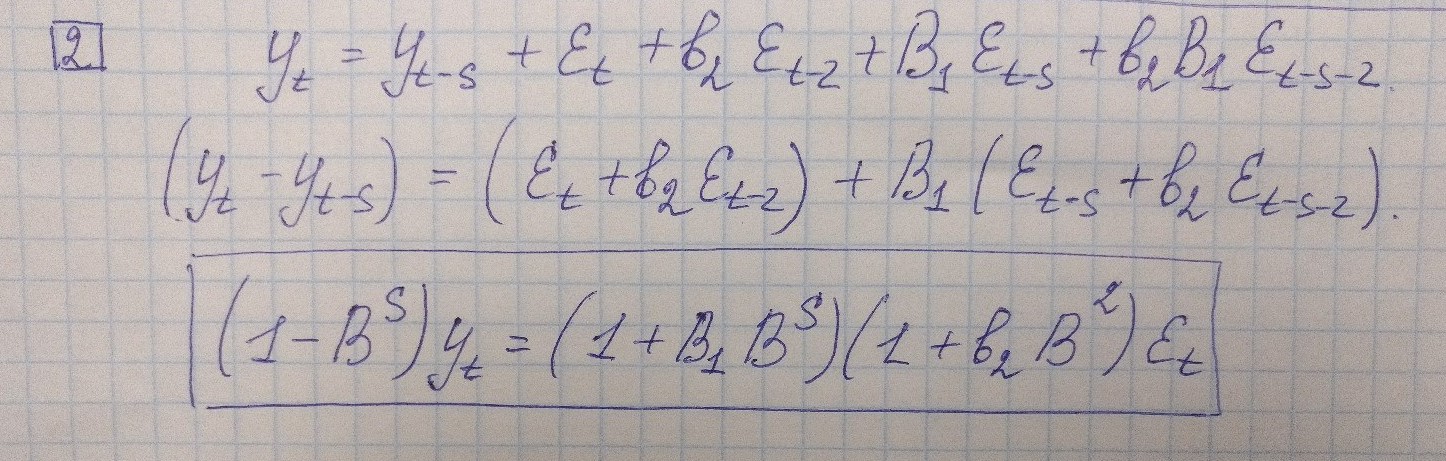 2 yₜ = yₜ₋ₛ + Ɛₜ + b₂ Ɛₜ₋₂ + B₁ Ɛₜ₋ₛ + b₂B₁ Ɛₜ₋ₛ₋₂.
(yₜ - yₜ₋ₛ) = (Ɛₜ + b₂Ɛₜ₋₂) + B₁ (Ɛₜ₋ₛ + b₂ Ɛₜ₋ₛ₋₂).
(1 - Bˢ) yₜ = (1 + B₁ Bˢ)(1 + b₂ B²) Ɛₜ